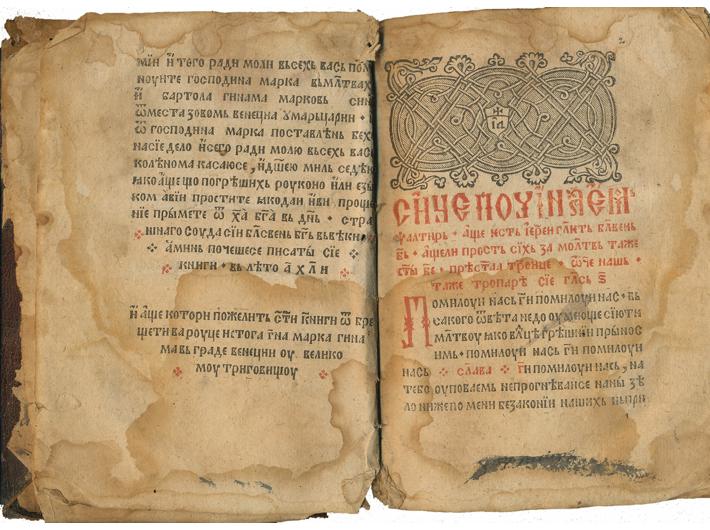 мїи и҆ того ради моли вьсехь вась пом
ноуите господина марка вьмл҃твахь
и҆ бартола гинама марковь син
ѿместа зовомь венециа ꙋ марцарии ·
ѿ господина марка поставлѣнь бех
насїе дело и҆сего ради молю вьсехь вас
колѣнома касаюсе , миль седѣ
ꙗко аще що погрѣших роуконо или езы
ком авїи простите ꙗкодаи и҆ви проще
нїе прымете ѿ х҃а бг҃а вь дн҃ь · стра
шнаго соуда сїи бл҃свень бг҃ь вьвѣки ,
аминь почешесе писаты сїе
книги · вь лѣто а҃ х҃ л҃ и
и҆ аще котори пожелить ст҃и книги ѿ бре
щети ва роуце истога г҃на марка гина
ма вь граде венеции оу велико
моу триговищоу
і҃д
сице поч
ѱалтирь · аще ѥсть їереи гл҃ть бл҃вень
б҃ь · ащели прость сїхь за молтвь таже
ст҃ы бе · прѣстаꙗ троице · ѿче нашь ·
таже тропарѣ сїе гл҃сь ѕ҃
Помилоуи нась г҃и помилоуи нас · вь
сакого ѿвѣта недо оумеюще сїюти
мл҃твоу ꙗко вл҃це грѣшнїи прынос
имь · помилоуи нась г҃и помилоуи
нась · слава · г҃и помилоуи нась , на
тебо оуповаемь непрогнѣваисе наны ѕѣ
ло нижепо мени безаконїи нашихь ныпри